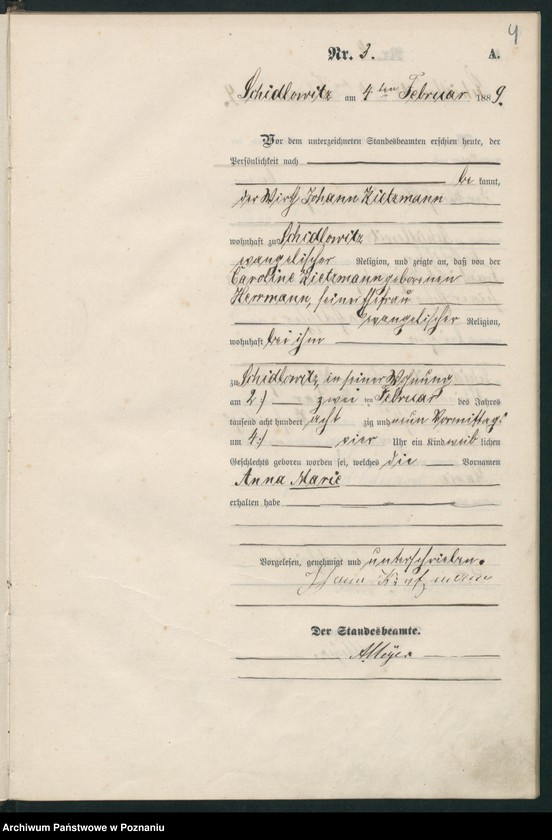 4
Nr. 3. A.
Schidlowitz am 4ten Februar 1889.
Vor dem unterzeichneten Standesbeamten erschien heute, der
Persönlichkeit nach
be kannt,
der Wirth Johann Kietzmann
wohnhaft zu Schidlowitz
evangelischer Religion, und zeigte an, daß von der
Caroline Kietzmann geborenen
Herrmann, seiner Ehefrau
evangelischer Religion,
wohnhaft bei ihm
zu Schidlowitz, in seiner Wohnung
am 2:) zwei ten Februar des Jahres
tausend acht hundert acht zig und neun Vormittags
um 4:) vier Uhr ein Kind weib lichen
Geschlechts geboren worden sei, welches die Vornamen
Anna Marie
erhalten habe
Vorgelesen, genehmigt und unterschrieben.
Der Standesbeamte.
Archiwum Państwowe w Poznaniu